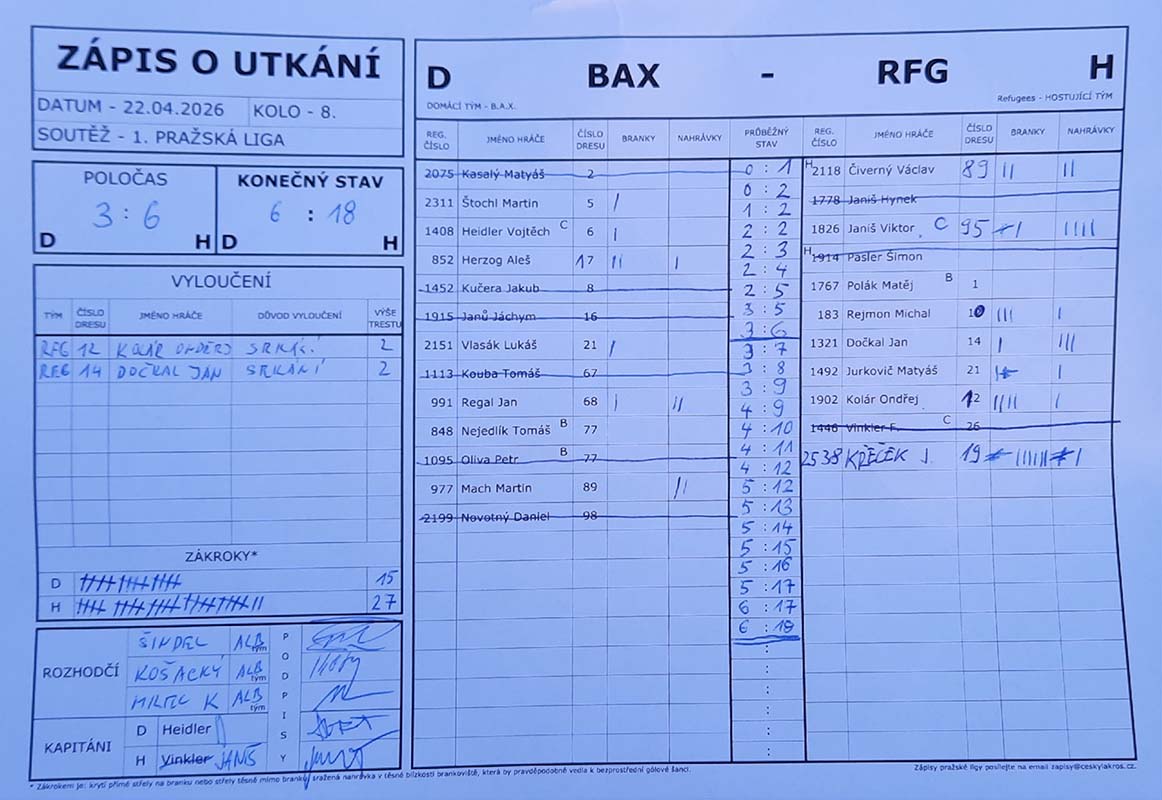 ZÁPIS O UTKÁNÍ
DATUM - 22.04.2026 KOLO - 8.
SOUTĚŽ - 1. PRAŽSKÁ LIGA
POLOČAS
3 : 6
D H
KONEČNÝ STAV
6 : 18
D H
VYLOUČENÍ
TÝM ČÍSLO DRESU JMÉNO HRÁČE DŮVOD VYLOUČENÍ VÝŠE TRESTU
RFG 12 KOLÁR ONDŘEJ SRKÁNÍ 2
RFG 14 DOČKAL JAN SRKÁNÍ 2
ZÁKROKY*
D 15
H 27
ROZHODČÍ
ŠINDEL ALB tým
KOŠACKÝ ALB tým
ALB tým
PODPISY
KAPITÁNI
D Heidler
H Vinkler JANIŠ
D BAX - RFG H
DOMÁCÍ TÝM - B.A.X. Refugees - HOSTUJÍCÍ TÝM
REG. ČÍSLO JMÉNO HRÁČE ČÍSLO DRESU BRANKY NAHRÁVKY
2075 Kasalý Matyáš 2
2311 Štochl Martin 5 |
1408 Heidler Vojtěch C 6 |
852 Herzog Aleš 17 || |
1452 Kučera Jakub 8
1915 Janů Jáchym 16
2151 Vlasák Lukáš 21 |
1113 Kouba Tomáš 67
991 Regal Jan 68 | ||
848 Nejedlík Tomáš B 77
1095 Oliva Petr B 77
977 Mach Martin 89 ||
2199 Novotný Daniel 98
PRŮBĚŽNÝ STAV
0 : 1
0 : 2
1 : 2
2 : 2
2 : 3
2 : 4
2 : 5
3 : 5
3 : 6
3 : 7
3 : 8
3 : 9
4 : 9
4 : 10
4 : 11
4 : 12
5 : 12
5 : 13
5 : 14
5 : 15
5 : 16
5 : 17
6 : 17
6 : 18
REG. ČÍSLO JMÉNO HRÁČE ČÍSLO DRESU BRANKY NAHRÁVKY
H 2118 Čiverný Václav 89 || ||
1778 Janiš Hynek
1826 Janiš Viktor C 95 | ||||
H 1914 Pasler Šimon
1767 Polák Matěj B 1
183 Rejmon Michal 10 ||| |
1321 Dočkal Jan 14 | |||
1492 Jurkovič Matyáš 21 | |
1902 Kolár Ondřej 12 |||| |
1446 Vinkler F. C 26
2538 KŘEČEK J. 19 |||||| |
* Zákrokem je: krytí přímé střely na branku nebo střely těsně mimo branku, sražená nahrávka v těsné blízkosti brankoviště, která by pravděpodobně vedla k bezprostřední gólové šanci.
Zápisy pražské ligy posílejte na email zapisy@ceskylakros.cz.